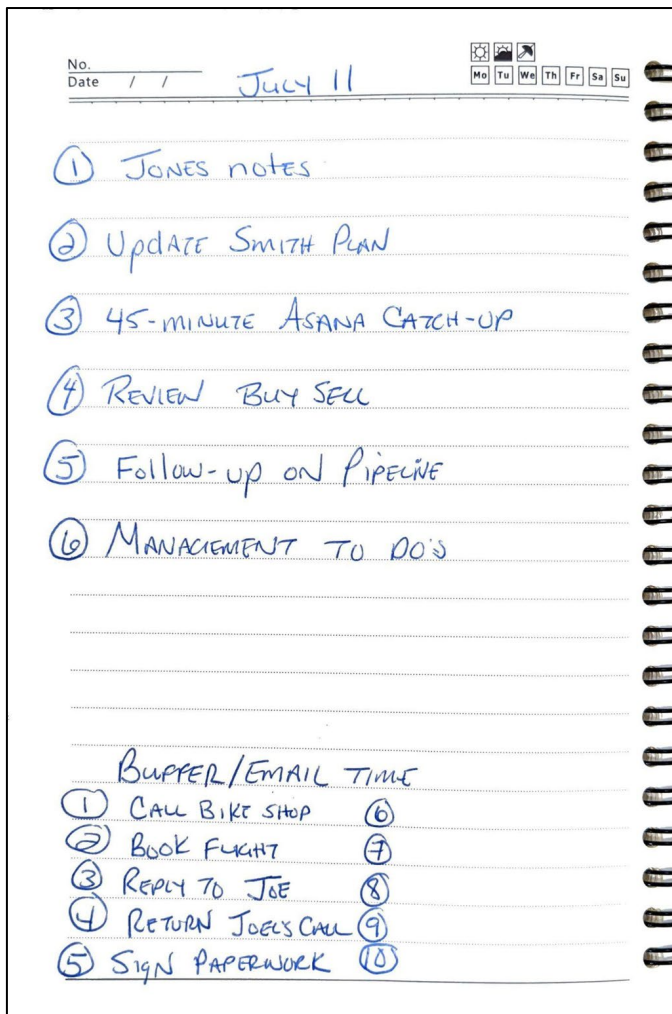 No.
Date / / July 11
Mo Tu We Th Fr Sa Su
① Jones notes
② Update Smith Plan
③ 45-minute Asana Catch-up
④ Review Buy Sell
⑤ Follow-up on Pipeline
⑥ Management to do's
Buffer/Email Time
① Call Bike Shop ⑥
② Book Flight ⑦
③ Reply to Joe ⑧
④ Return Joel's Call ⑨
⑤ Sign Paperwork ⑩